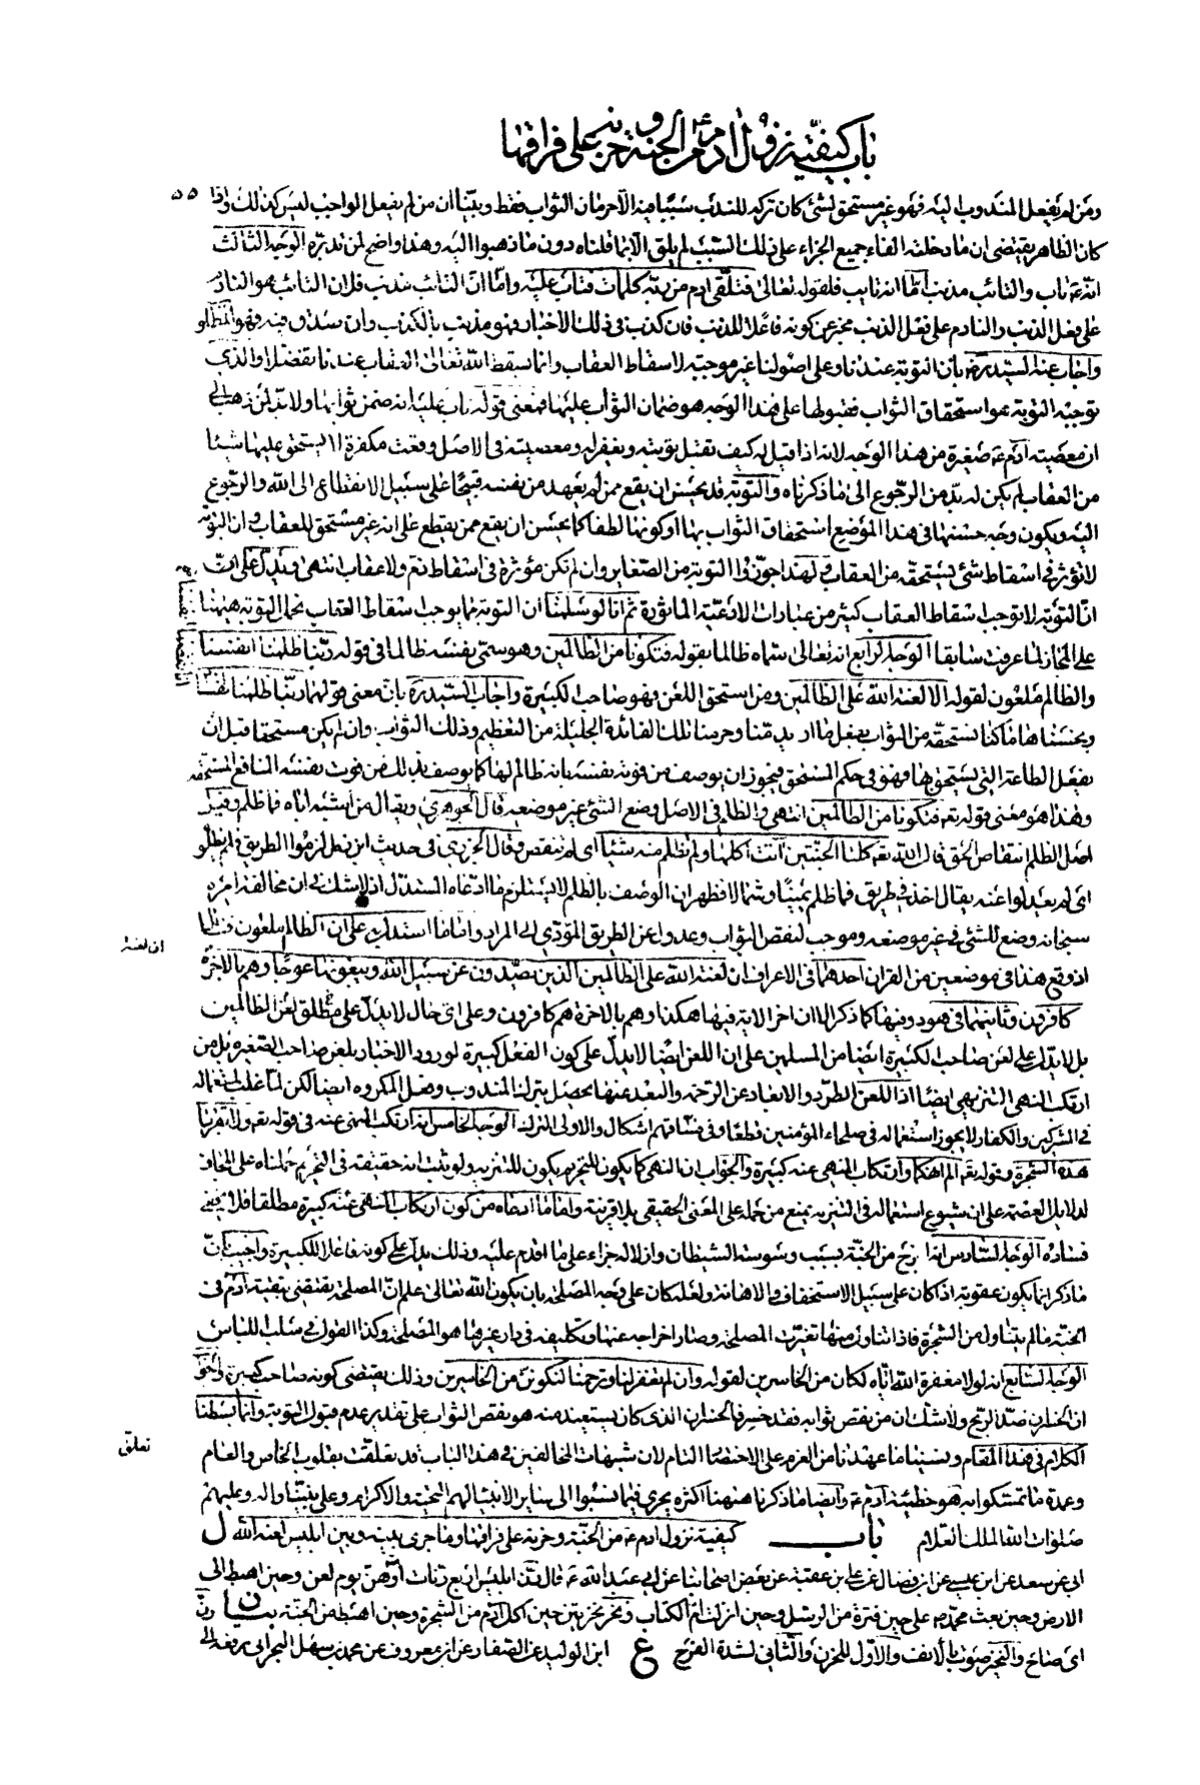 باب كيفيّة نزول آدم ع من الجنة وحزنه على فراقها
٥٥
ومن لم يفعل المندوب اليه فهو غير مستحق لشئ كان تركه للندب سببا منه الا حرمان الثواب فقط وبيّنا ان من لم يفعل الواجب ليس كذلك واذا
كان الظاهر يقتضى ان ما دخلته الفاء جميع الجزاء على ذلك السّبب لم يلق الا بما قلناه دون ما ذهبوا اليه وهذا واضح لمن تدبّره الوجه الثالث
انّه ع تاب والتائب مذنب امّا انه تايب فلقوله تعالى فتلقّى ادم من ربّه كلمات فتاب عليه وامّا انّ التائب مذنب فلان التائب هو النادم
على فعل الذنب والنادم على فعل الذنب مخبر عن كونه فاعلا للذنب فان كذب في ذلك الاخبار فهو مذنب بالكذب وان صدق فيه فهو المطلو
واجاب عنه السّيّد ره بان التوبة عندنا وعلى اصولنا غير موجبة لاسقاط العقاب وانما يسقط الله تعالى العقاب عندنا تفضلا والذى
توجبه التوبة هو استحقاق الثواب فقبولها على هذا الوجه هو ضمان الثواب عليها فمعنى قوله تاب عليه انه ضمن ثوابها ولا بدّ لمن ذهب الى
ان معصية آدم ع صغيرة من هذا الوجه لانه اذا قيل له كيف تقبل توبته ويغفر له ومعصيته في الاصل وقعت مكفرة لا يستحق عليها شيئا
من العقاب لم يكن له بدّ من الرّجوع الى ما ذكرناه والتوبة قد يحسن ان يقع ممن لم يعهد من نفسه قبيحا على سبيل الانقطاع الى الله والرّجوع
اليه ويكون وجه حسنها في هذا الموضع استحقاق الثواب بها او كونها لطفا كما يحسن ان يقع ممن يقطع على انه غير مستحق للعقاب وان التوبة
لا تؤثر في اسقاط شئ يستحقه من العقاب ولهذا جوّزوا التوبة من الصغاير وان لم تكن مؤثرة في اسقاط ذم ولا عقاب انتهى ويدلّ على
انّ التوبة لا توجب اسقاط العقاب كثير من عبارات الادعية الماثورة ثم انّا لو سلمنا ان التوبة مما يوجب اسقاط العقاب نحمل التوبة هيهنا
على المجاز لما عرفت سابقا الوجه الرابع انه تعالى سماه ظالما بقوله فتكونا من الظالمين وهو سمّى نفسه ظالما في قوله ربّنا ظلمنا انفسنا
والظالم ملعون لقوله الا لعنة الله على الظالمين ومن استحق اللعن فهو صاحب الكبيرة واجاب السّيّد ره بانّ معنى قولهما ربّنا ظلمنا انفسنا
وبخسناها ما كنا نستحقه من الثواب بفعل ما اريد منّا وحرمنا تلك الفائدة الجليلة من التعظيم وذلك الثواب وان لم يكن مستحقا قبل ان
يفعل الطاعة التى يستحق بها فهو في حكم المستحق فيجوز ان يوصف من فوته نفسه بانه ظالم لها كما يوصف بذلك من فوت نفسه المنافع المستحقة
وهذا هو معنى قوله تع فتكونا من الظالمين انتهى والظلم في الاصل وضع الشئ غير موضعه قال الجوهرى ويقال من اشبه اباه فما ظلم وقيل
اصل الظلم انتقاص الحق قال الله تع كلتا الجنّتين آتت اكلها ولم تظلم منه شيئا اى لم تنقص وقال الجزرى في حديث ابن زمل لزموا الطريق فلم يظلمو
اى لم يعدلوا عنه يقال اخذ في طريق فما ظلم يمينا وشمالا فظهر ان الوصف بالظلم لا يستلزم ما ادّعاه المستدل اذ لا شك في ان مخالفة امره
سبحانه وضع للشئ في غير موضعه وموجب لنقص الثواب وعدول عن الطريق المؤدّى الى المراد وامّا ما استدل به على ان الظالم ملعون فباطل
ان لعنة
اذ وقع هذا في موضعين من القران احدهما في الاعراف ان لعنة الله على الظالمين الذين يصدّون عن سبيل الله ويبغونها عوجا وهم بالاخرة
كافرون وثانيهما في هود وفيها كما ذكر الا ان اخر الاية فيها هكذا وهم بالاخرة هم كافرون وعلى اىّ حال لا يدلّ على مطلق لعن الظالمين
بل لا يدل على لعن صاحب الكبيرة ايضا من المسلمين على ان اللعن ايضا لا يدل على كون الفعل كبيرة لورود الاخبار بلعن صاحب الصّغيرة بل من
ارتكب النهى التنزيهى ايضا اذ اللعن الطرد والابعاد عن الرّحمة والبعد عنها يحصل بترك المندوب وفعل المكروه ايضا لكن لمّا غلب استعماله
في المشركين والكفار لا يجوز استعماله في صلحاء المؤمنين قطعا وفي فساقهم اشكال والاولى الترك الوجه الخامس انه ارتكب المنهى عنه في قوله تع ولا تقربا
هذه الشجرة وقوله تع الم انهكما وارتكاب المنهى عنه كبيرة والجواب ان النهى كما يكون للتحريم يكون للتنزيه ولو ثبت انه حقيقة في التحريم حملناه على المجاز
لدلايل العصمة على ان شيوع استعماله في التنزيه يمنع من حمله على المعنى الحقيقى بلا قرينة وامّا ما ادعاه من كون ارتكاب المنهى عنه كبيرة مطلقا فلا يخفى
فساده الوجه السّادس انه اخرج من الجنّة بسبب وسوسة الشيطان وازلاله جزاء على ما اقدم عليه وذلك يدلّ على كونه فاعلا للكبيرة واجيب بانّ
ما ذكر انما يكون عقوبة اذا كان على سبيل الاستخفاف والاهانة ولعله كان على وجه المصلحة بان يكون الله تعالى علم انّ المصلحة يقتضى تبقية ادم في
الجنّة ما لم يتناول من الشجرة فاذا تناول منها تغيّرت المصلحة وصار اخراجه عنها وتكليفه في دار غيرها هو المصلحة وكذا القول في سلب اللباس
الوجه السّابع انه لولا مغفرة الله ايّاه لكان من الخاسرين لقوله وان لم تغفر لنا وترحمنا لنكونن من الخاسرين وذلك يقتضى كونه صاحب كبيرة والجواب
ان الخسران ضدّ الربح ولا شك ان من نقص ثوابه فقد خسر فالخسران الذى كان يستعيذ منه هو نقص الثواب على تقدير عدم قبول التوبة وانما بسطنا
الكلام في هذا المقام ونسينا ما عهدنا من العزم على الاختصار التام لان شبهات المخالفين في هذا الباب قد تعلقت بقلوب الخاص والعام
تعلق
وعمدة ما تمسّكوا به هو خطيئة آدم ع وايضا ما ذكرنا هيهنا اكثره يجرى فيما نسبوا الى ساير الانبياء لهم التحية والاكرام وعلى نبيّنا واله وعليهم
صلوات الله الملك العلام باب كيفية نزول ادم ع من الجنّة وحزنه على فراقها وما جرى بينه وبين ابليس لعنه الله ل
ابى عن سعد عن ابن عيسى عن ابن فضال عن على بن عقبة عن بعض اصحابنا عن ابى عبد الله ع قال لقد رنّ ابليس اربع رنّات اوّلهنّ يوم لعن وحين اهبط الى
الارض وحين بعث محمّد ص على حين فترة من الرسل وحين انزلت امّ الكتاب ونخر نخرتين حين اكل آدم من الشجرة وحين اهبط من الجنّة بيان رنّ
اى صاح والنخير صوت بالانف والاوّل للحزن والثانى لشدة الفرح ع ابن الوليد عن الصّفار عن ابن معروف عن محمد بن سهل البحرانى يرفعه الى